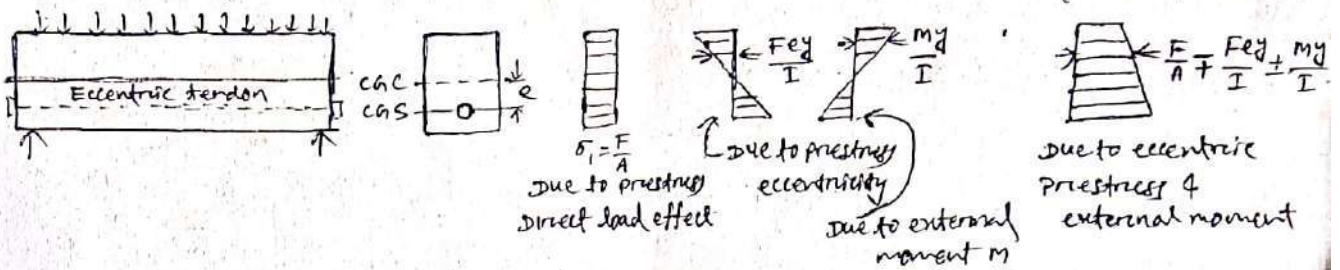 Eccentric tendon
CGC
CGS
e
σ₁ = F/A
Due to prestress
Direct load effect
Fey/I
My/I
Due to prestress
eccentricity
Due to external
moment M
F/A ∓ Fey/I ± My/I
Due to eccentric
Prestress &
external moment